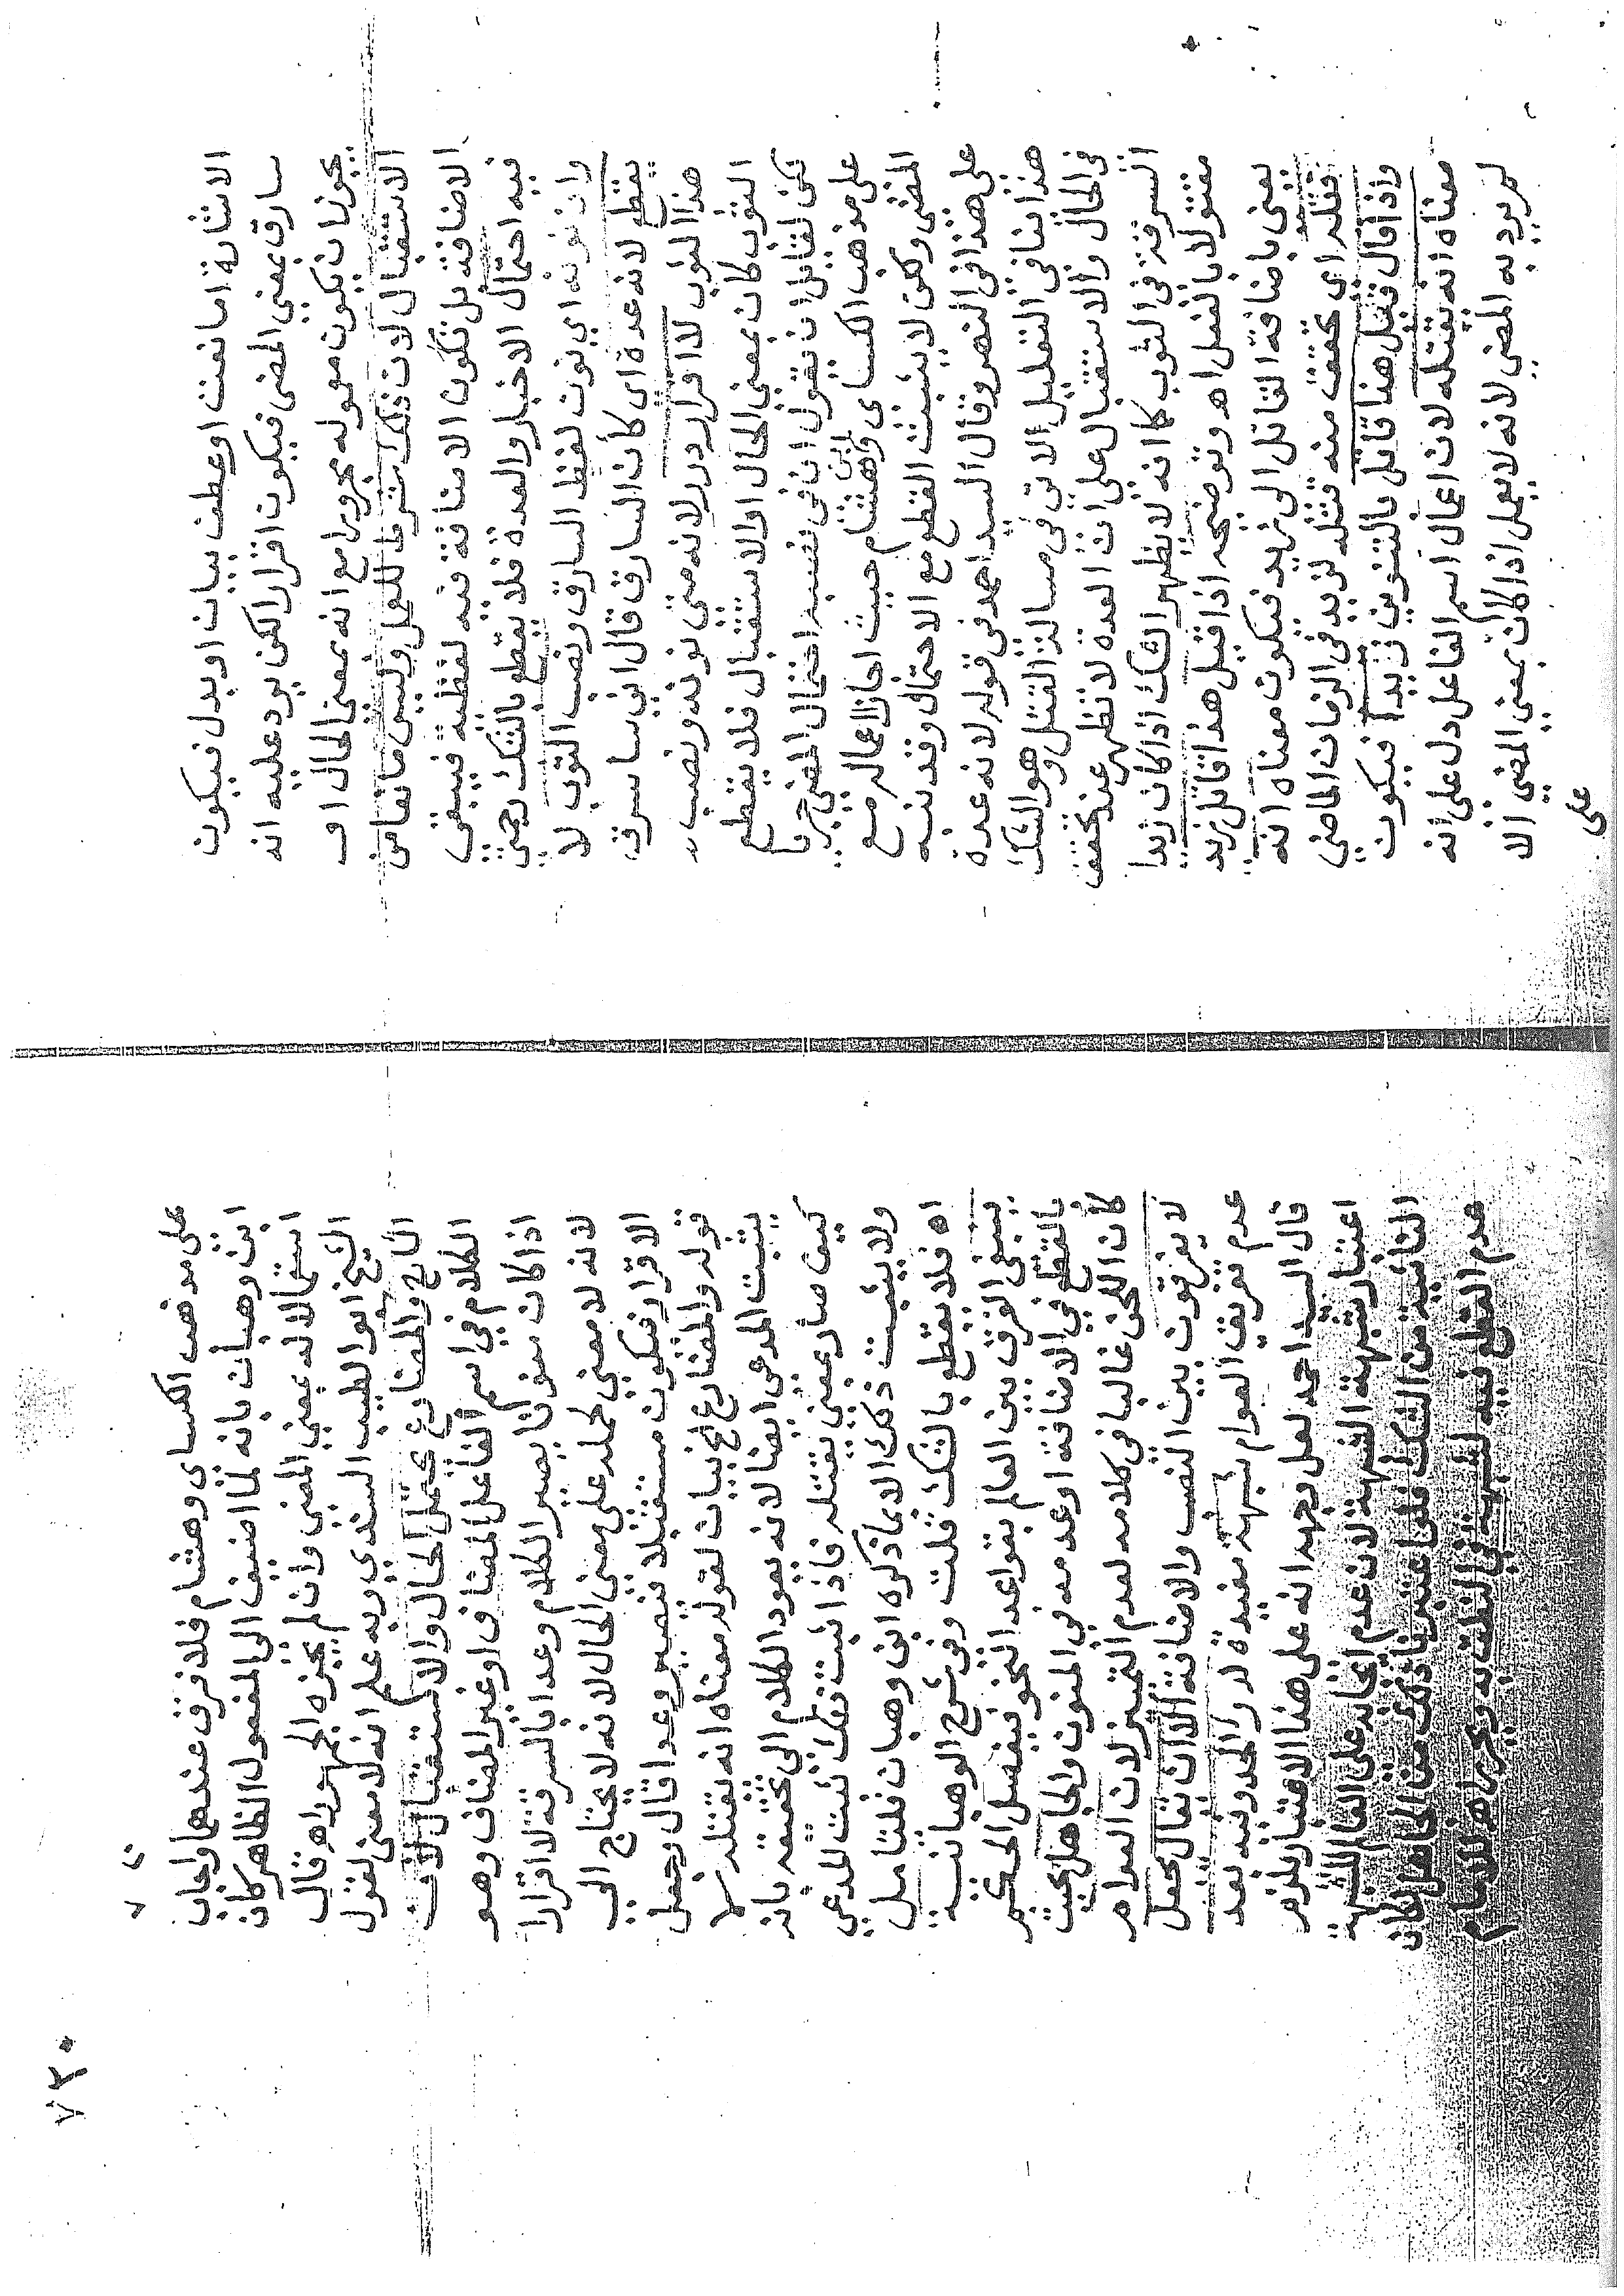 الاشارة اما نعت او عطف بيان او بدل فيكون
سارق بمعني المضى فيكون اقرارا لكن يرد عليه انه
يجوزان يكون معموله مجرورا مع انه بمعنى الحال او
الاستقبال لان ذلك شرط للعمل وليس مانعا من
الاضافة بل تكون الاضافة فيه لفظية فيبقى
فيه احتمال الاخبار والعدة فلا يقطع بالشك رحمتي
وان نونه اي نون لفظ السارق ونصب الثوب لا
يقطع لانه عدة اى كأن السارق قال انى ساسرق
هذا الثوب لا اقرار درر لانه متى نونه ونصب
الثوب كان بمعنى الحال او الاستقبال فلا يقطع
لكن لقائل ان يقول ان فى نصبه احتمال المضي جريا
على مذهب الكساى وابن هشام حيث اجازا اعماله مع
المضى ولكن لا يثبت القطع مع الاحتمال وقد نبه
على هذا فى النهر وقال السيد احمد فى قوله لانه عدة
هذا ينافى التعليل الاتى فى مسالة القتل وهو الشك
فى الحال والاستقبال على ان العدة لا تظهر عند تحقق
السرقة فى الثوب كما انه لا يظهر الشك اذا كان زيدا
مقتولا بالفعل اه وتوضيحه اذا قيل هذا قاتل زيد
يعنى باضافة القاتل الى زيد فيكون معناه انه
قتله اى تحقق منه قتله لزيد فى الزمان الماضي
واذا قال قيل هذا قاتل بالتنوين زيدا فيكون
معناه انه يقتله لان اعمال اسم الفاعل دل على انه
لم يرد به المضي لانه لا يعمل اذا كان بمعنى المضي الا
على
على مذهب الكساى وهشام فلا فرق عندهما واجاب
ابن وهبان بانه لما اضيف الى المفعول الظاهر كان
استعمالا له بمعنى المضى وان لم يجزه الجمهور اهر قال
الشيخ ابو الطيب السندي وبه علم انه لا معنى لقول
الشارح والمضارع يحتمل الحال والاستقبال لان
الكلام في اسم الفاعل المضاف او غير المضاف وهو
اذا كان منونا يصير الكلام وعدا بالسرقة لا اقرارا
لانه لا معنى لحمله على معنى الحال لانه لا يحتاج الى
الاقرار فيكون مستقبلا فيصير وعدا قال وجعل
قوله والمضارع الخ بيان لقوله معناه انه يقتله لا
يثبت المدعى ايضا لانه يعود الكلام الى تحققه بانه
كيف صار بمعنى يقتله فاذا ثبت ذلك ثبت المدعي
ولا يثبت ذلك الا بما ذكره ابن وهبان فليتامل
اه فلا يقطع بالشك قلت وفى شرح الوهبانية
ينبغى الفرق بين العالم بقواعد النحو فيفصل الحكم
بالقطع في الاضافة او عدمه في المنون والجاهل بحيث
كان اللحن غالبا فى كلامه لعدم التمييز لان العوام
لا يفرقون بين النصب والاضافة الا ان يقال يجعل
عدم تفريق العوام شبهة مفيدة لدرا الحد وفيه بعد
قال السيد احمد لعل وجهه انه على هذا الاعتبار يلزم
اعتبار شبهة الشبهة لان عدم اتحاده على القا الشبهة
الناشية من الشك فلو اعتبرنا ذلك من الجاهل لكان
عدم القطع فيه لشبهة في التلفظ به ويحرر اهر للامام
٧٣٠